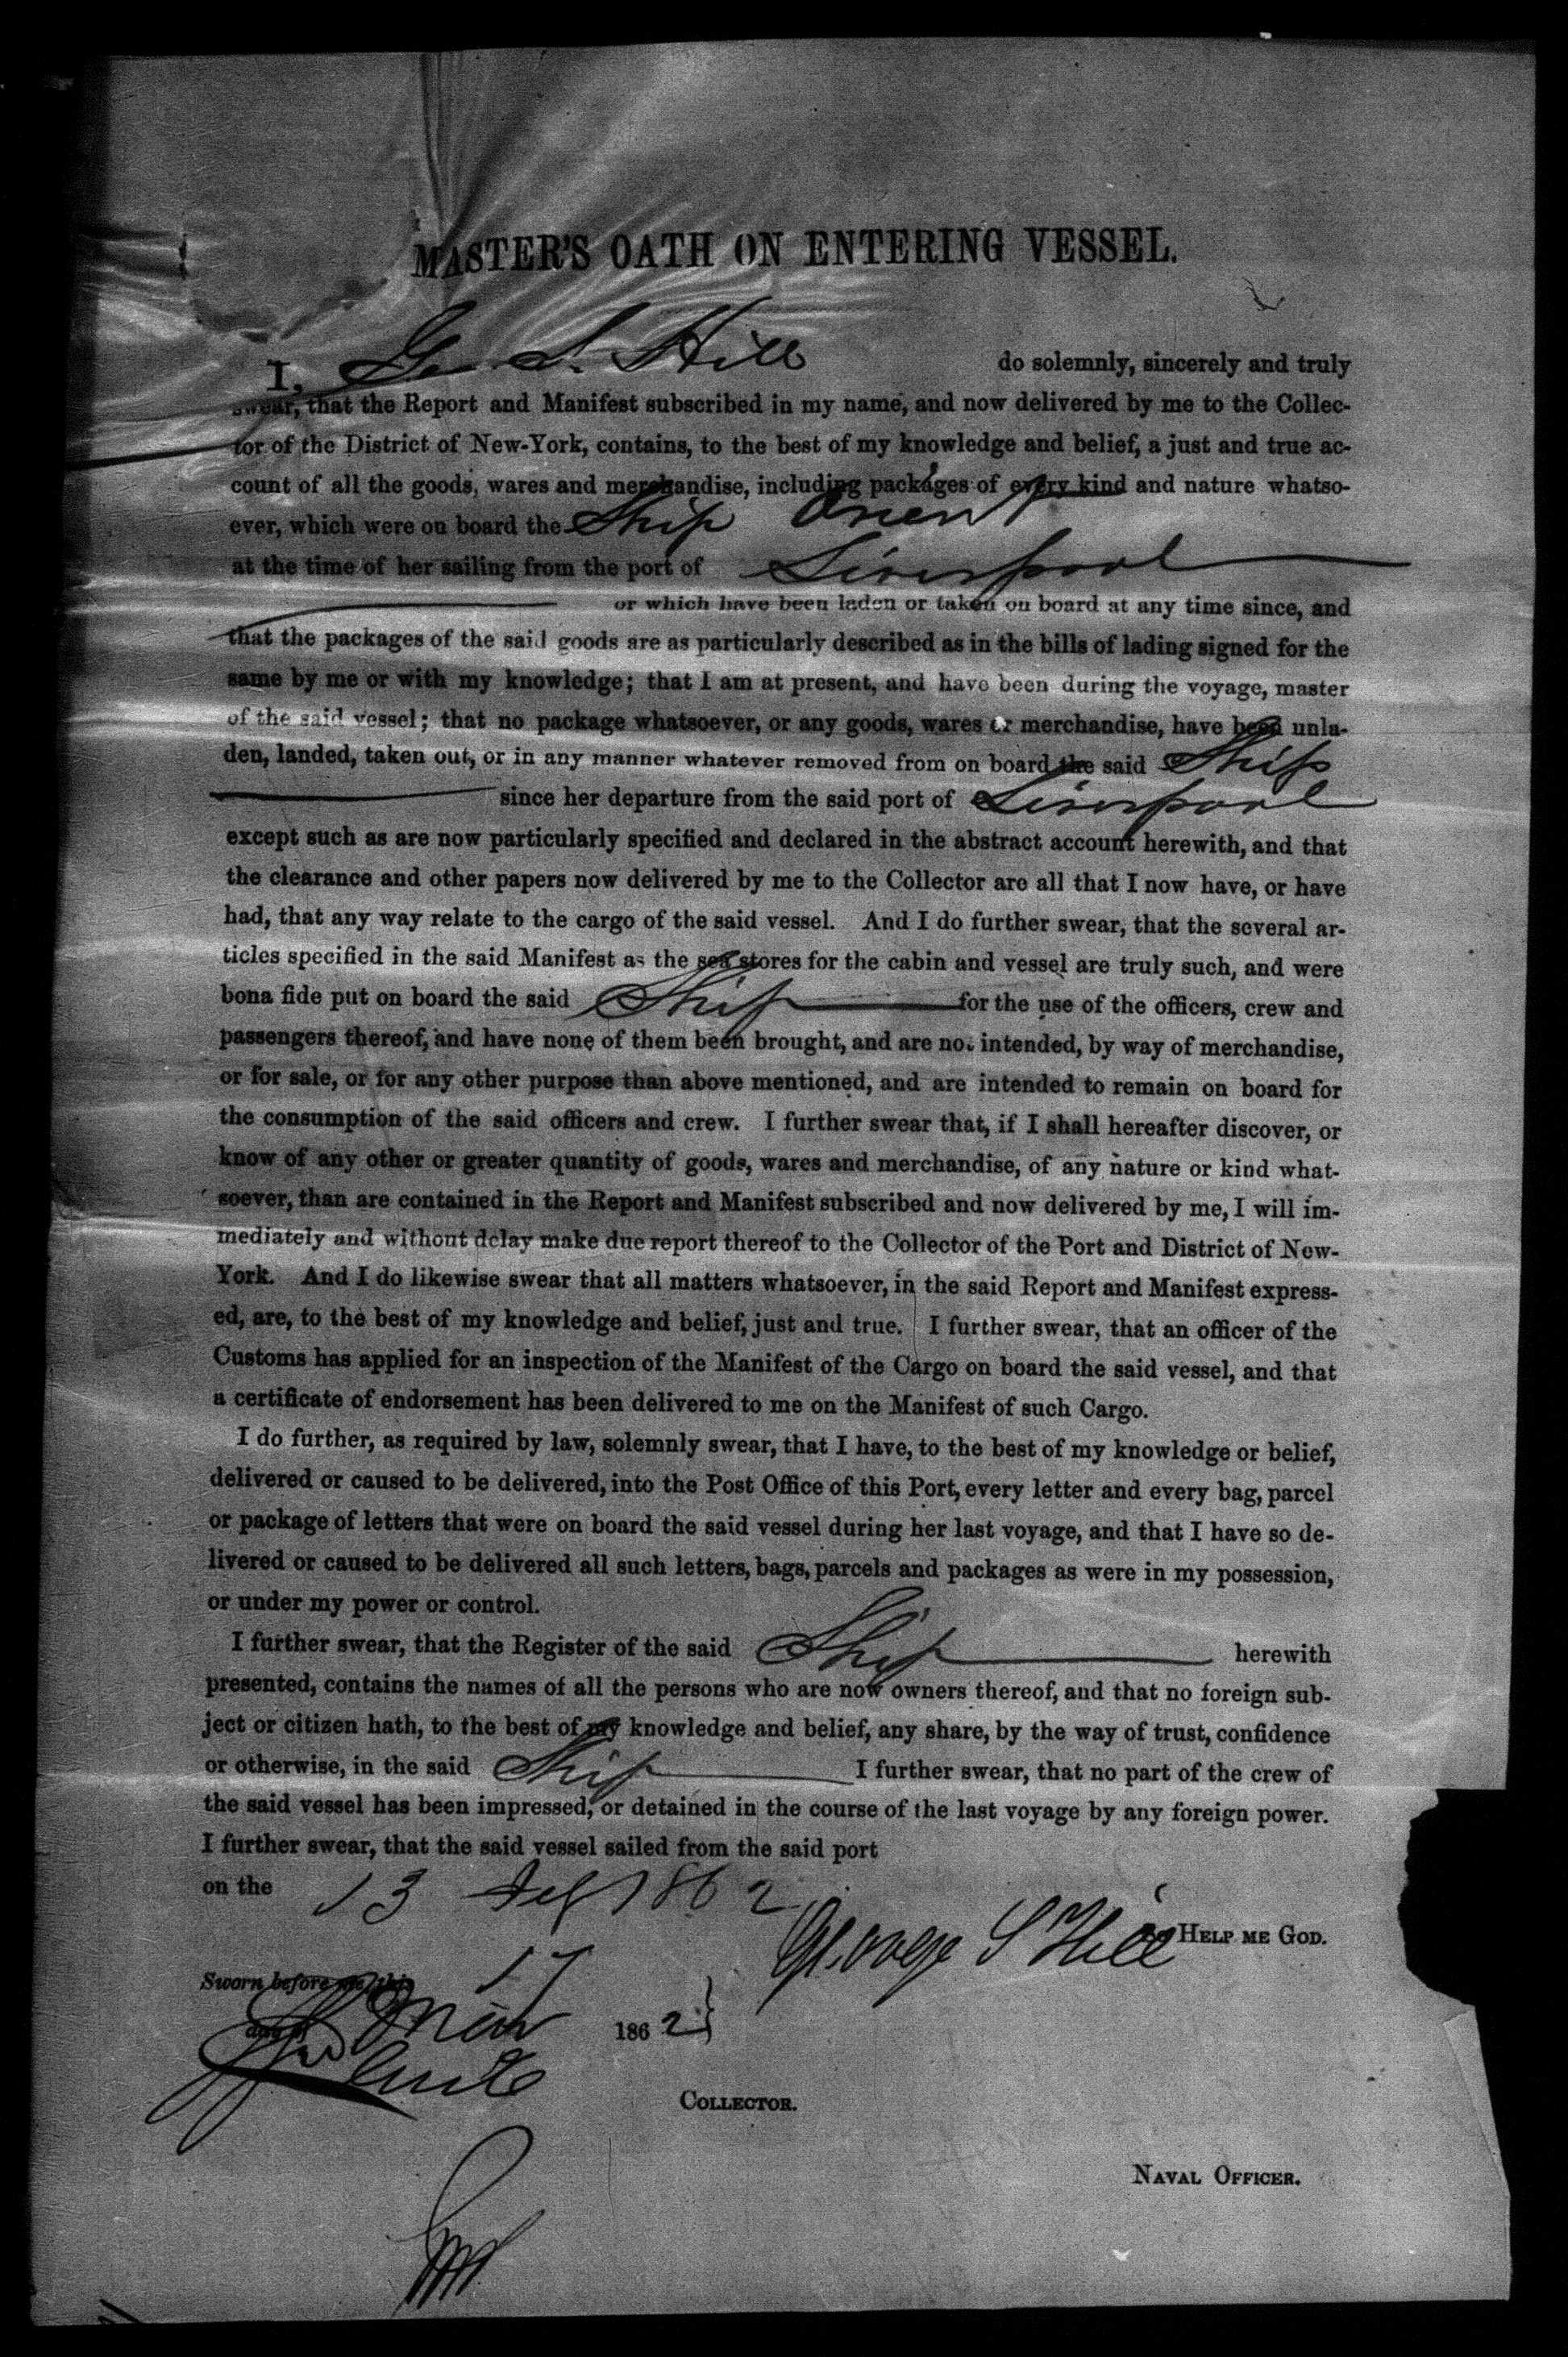 MASTER'S OATH ON ENTERING VESSEL.
I, Geo S. Hill do solemnly, sincerely and truly
swear, that the Report and Manifest subscribed in my name, and now delivered by me to the Collec-
tor of the District of New-York, contains, to the best of my knowledge and belief, a just and true ac-
count of all the goods, wares and merchandise, including packages of every kind and nature whatso-
ever, which were on board the Ship Orient
at the time of her sailing from the port of Liverpool
or which have been laden or taken on board at any time since, and
that the packages of the said goods are as particularly described as in the bills of lading signed for the
same by me or with my knowledge; that I am at present, and have been during the voyage, master
of the said vessel; that no package whatsoever, or any goods, wares or merchandise, have been unla-
den, landed, taken out, or in any manner whatever removed from on board the said Ship
since her departure from the said port of Liverpool
except such as are now particularly specified and declared in the abstract account herewith, and that
the clearance and other papers now delivered by me to the Collector are all that I now have, or have
had, that any way relate to the cargo of the said vessel. And I do further swear, that the several ar-
ticles specified in the said Manifest as the sea stores for the cabin and vessel are truly such, and were
bona fide put on board the said Ship for the use of the officers, crew and
passengers thereof, and have none of them been brought, and are not intended, by way of merchandise,
or for sale, or for any other purpose than above mentioned, and are intended to remain on board for
the consumption of the said officers and crew. I further swear that, if I shall hereafter discover, or
know of any other or greater quantity of goods, wares and merchandise, of any nature or kind what-
soever, than are contained in the Report and Manifest subscribed and now delivered by me, I will im-
mediately and without delay make due report thereof to the Collector of the Port and District of New-
York. And I do likewise swear that all matters whatsoever, in the said Report and Manifest express-
ed, are, to the best of my knowledge and belief, just and true. I further swear, that an officer of the
Customs has applied for an inspection of the Manifest of the Cargo on board the said vessel, and that
a certificate of endorsement has been delivered to me on the Manifest of such Cargo.
I do further, as required by law, solemnly swear, that I have, to the best of my knowledge or belief,
delivered or caused to be delivered, into the Post Office of this Port, every letter and every bag, parcel
or package of letters that were on board the said vessel during her last voyage, and that I have so de-
livered or caused to be delivered all such letters, bags, parcels and packages as were in my possession,
or under my power or control.
I further swear, that the Register of the said Ship herewith
presented, contains the names of all the persons who are now owners thereof, and that no foreign sub-
ject or citizen hath, to the best of my knowledge and belief, any share, by the way of trust, confidence
or otherwise, in the said Ship I further swear, that no part of the crew of
the said vessel has been impressed, or detained in the course of the last voyage by any foreign power.
I further swear, that the said vessel sailed from the said port
on the 13 Feby 1862
George S Hill HELP ME GOD.
Sworn before me this 17
day of Mar 1862
COLLECTOR.
NAVAL OFFICER.